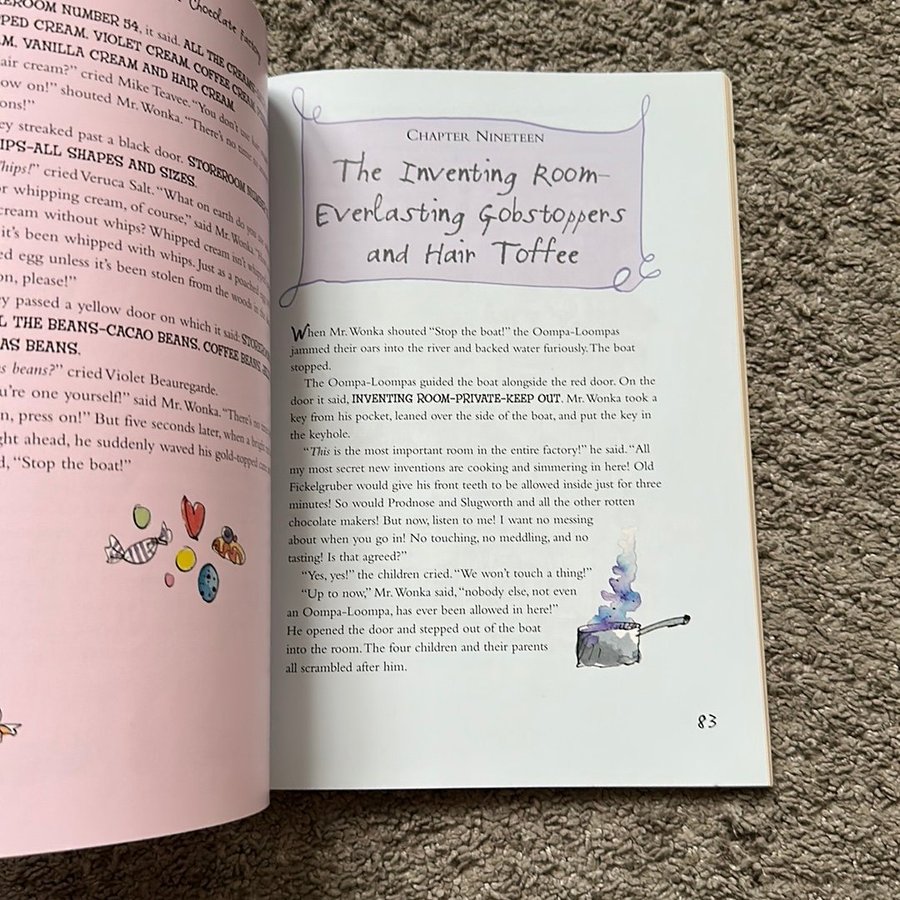 Chocolate Factory
EROOM NUMBER 54, it said. ALL THE CREAMS
PPED CREAM, VIOLET CREAM, COFFEE CREAM,
AM, VANILLA CREAM AND HAIR CREAM.
air cream?" cried Mike Teavee. "You don't use
ow on!" shouted Mr. Wonka. "There's no time
ons!"
ey streaked past a black door. STOREROOM NUMBER
IPS-ALL SHAPES AND SIZES.
hips!" cried Veruca Salt. "What on earth do you
r whipping cream, of course," said Mr. Wonka.
cream without whips? Whipped cream isn't whipped
it's been whipped with whips. Just as a poached egg
ed egg unless it's been stolen from the woods in the
on, please!"
ey passed a yellow door on which it said:
L THE BEANS-CACAO BEANS, COFFEE BEANS,
AS BEANS.
s beans?" cried Violet Beauregarde.
u're one yourself!" said Mr. Wonka. "There's no
n, press on!" But five seconds later, when a bright
ght ahead, he suddenly waved his gold-topped
d, "Stop the boat!"
CHAPTER NINETEEN
The Inventing Room-
Everlasting Gobstoppers
and Hair Toffee
When Mr. Wonka shouted "Stop the boat!" the Oompa-Loompas
jammed their oars into the river and backed water furiously. The boat
stopped.
The Oompa-Loompas guided the boat alongside the red door. On the
door it said, INVENTING ROOM-PRIVATE-KEEP OUT. Mr. Wonka took a
key from his pocket, leaned over the side of the boat, and put the key in
the keyhole.
"This is the most important room in the entire factory!" he said. "All
my most secret new inventions are cooking and simmering in here! Old
Fickelgruber would give his front teeth to be allowed inside just for three
minutes! So would Prodnose and Slugworth and all the other rotten
chocolate makers! But now, listen to me! I want no messing
about when you go in! No touching, no meddling, and no
tasting! Is that agreed?"
"Yes, yes!" the children cried. "We won't touch a thing!"
"Up to now," Mr. Wonka said, "nobody else, not even
an Oompa-Loompa, has ever been allowed in here!"
He opened the door and stepped out of the boat
into the room. The four children and their parents
all scrambled after him.
83